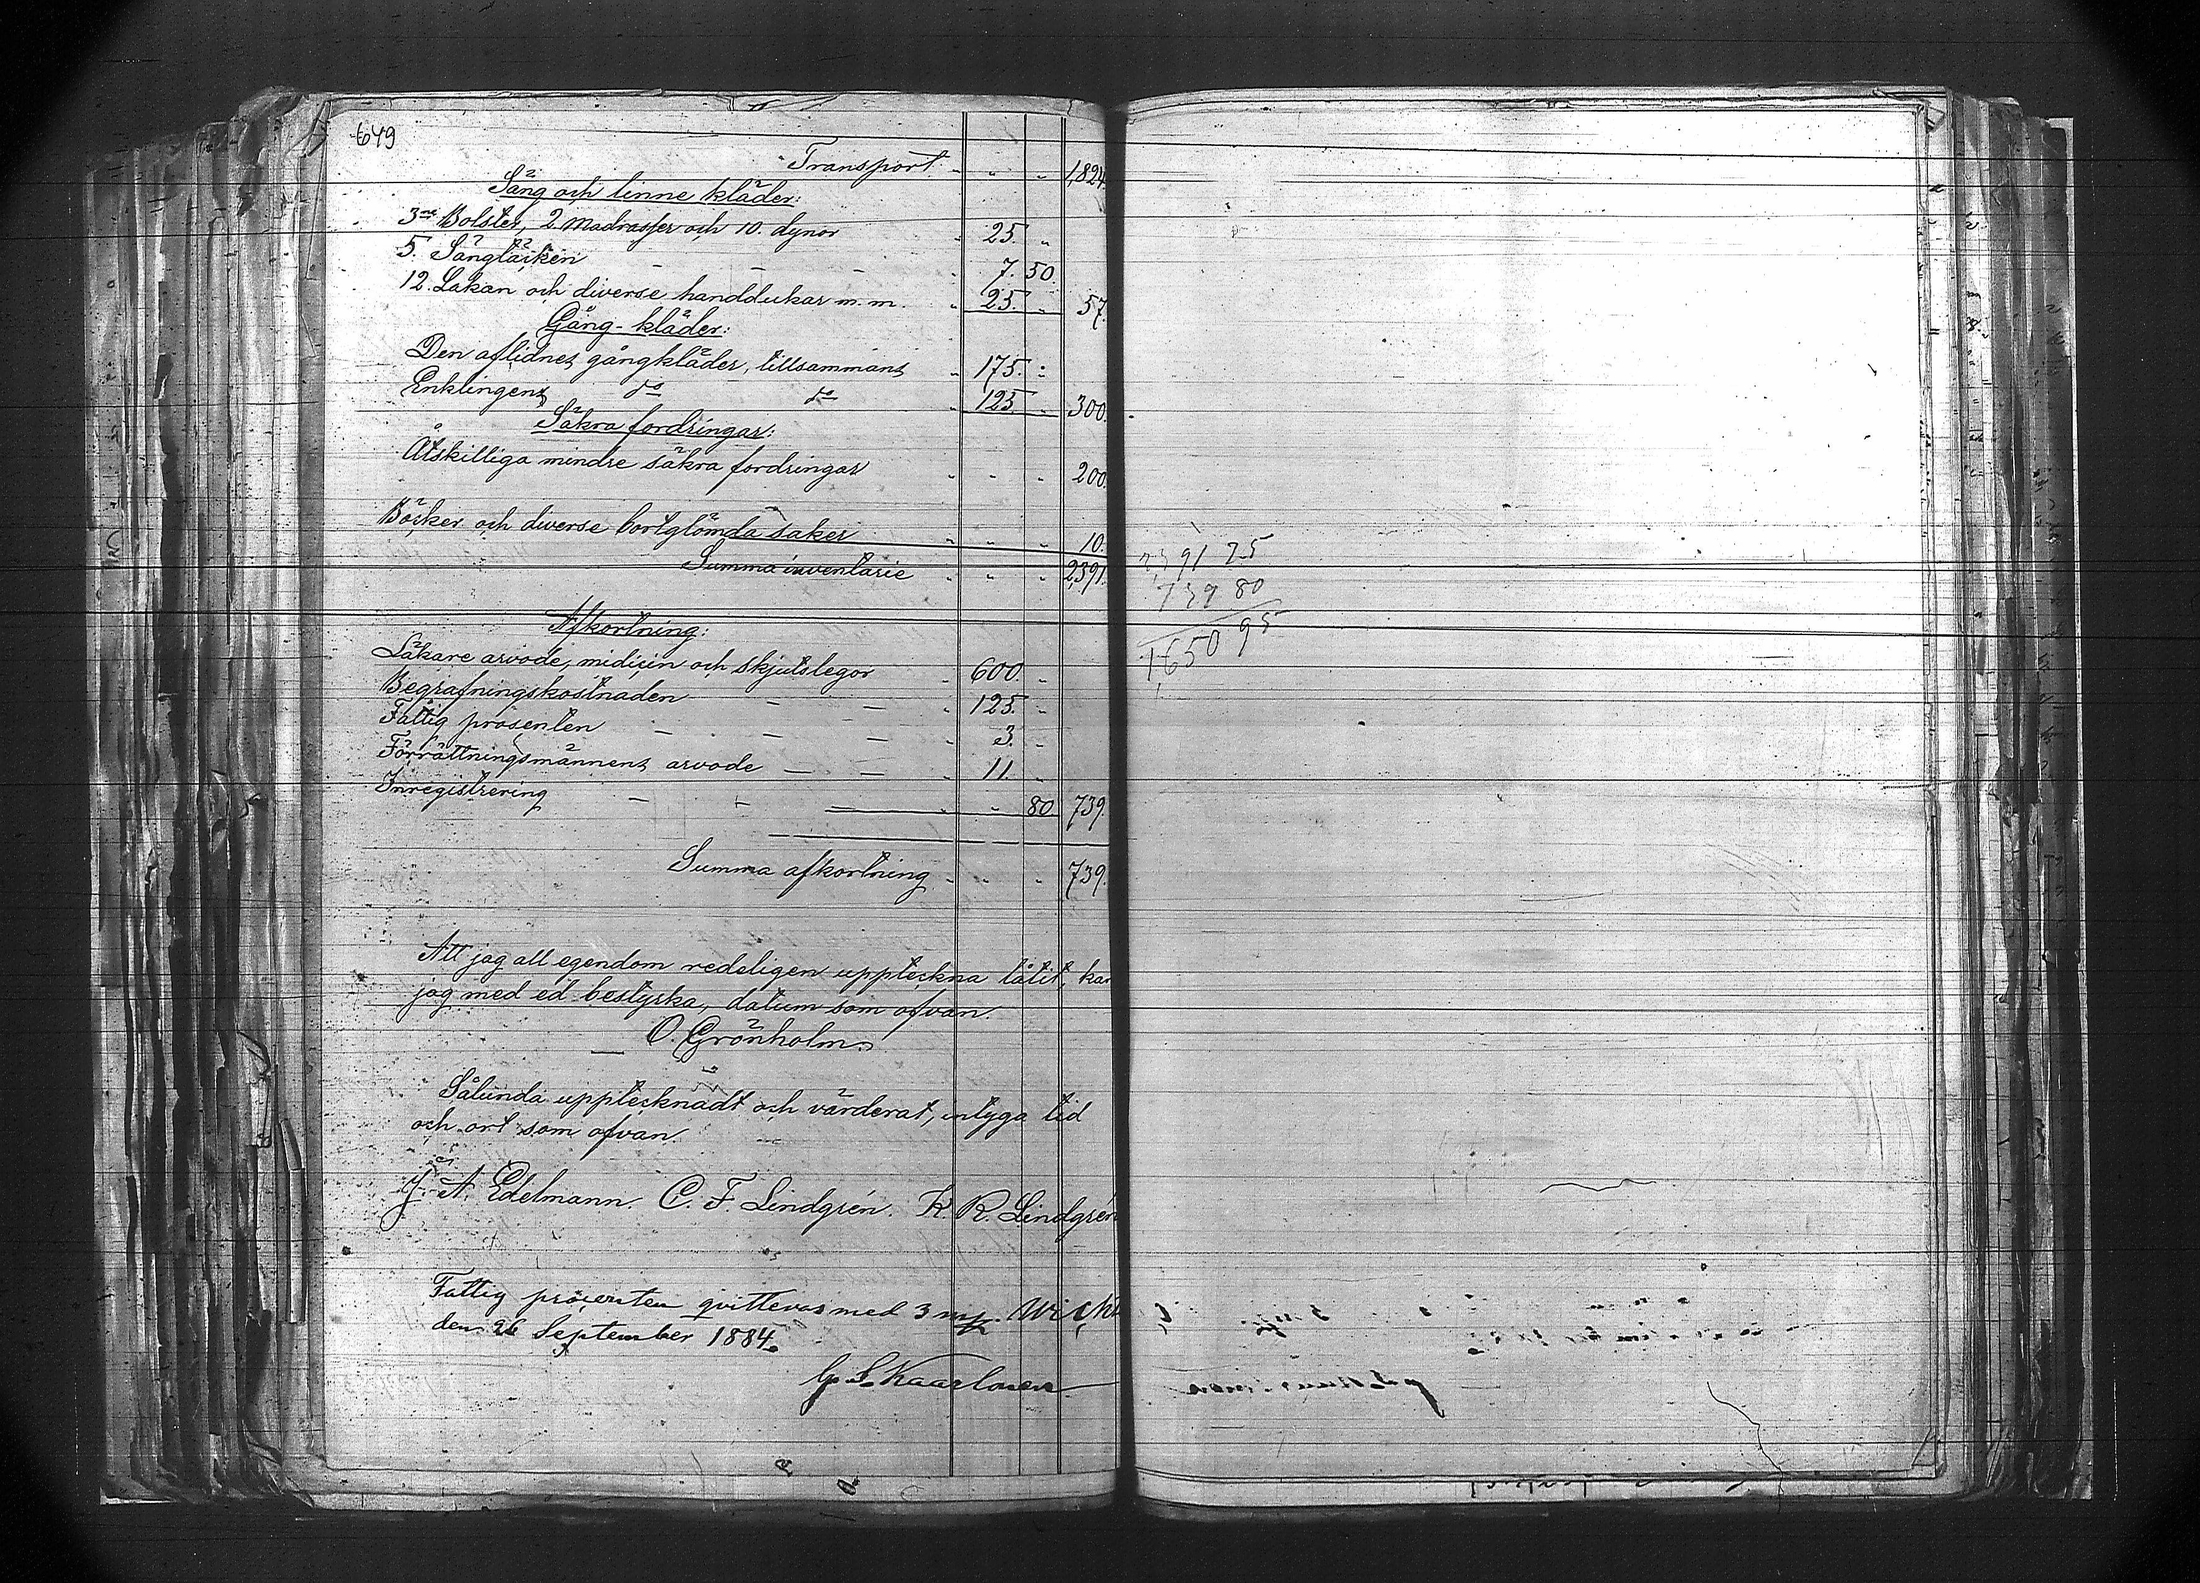 649
Transport " " " 1,824
Säng och linne kläder:
3ne Bolster, 2 Madrasser och 10. dynor " 25. "
5. Sängtäcken - - - " 7. 50.
12. Lakan och diverse handdukar m. m. " 25. " 57.
Gång-kläder:
Den aflidnes gångkläder, tillsammans " 175. "
Enklingens do do " 125. " 300.
Säkra fordringar:
Åtskilliga mindre säkra fordringar " " " 200.
Böcker och diverse bortglömda saker " " " 10.
Summa inventarie " " " 2,391.
Afkortning:
Läkare arvode, midicin och skjutslegor " 600. "
Begrafningskostnaden - - " 125. "
Fattig prosenten - - - " 3. "
Förrättningsmännens arvode - - " 11. "
Inregistrering - - " " 80. 739.
Summa afkortning " " " 739.
Att jag all egendom redeligen uppteckna låtit, kan
jag med ed bestyrka, datum som ofvan.
O. Grönholm.
Sålunda upptecknadt och värderat, intyga tid
och ort som ofvan.
J. A. Edelmann. C. F. Lindgrén. K. R. Lindgrén
Fattig procenten qvitteras med 3 mk. Wichtis
den 26 September 1884.
G. S. Kaarlonen
2,391 25
739 80
1,650 95